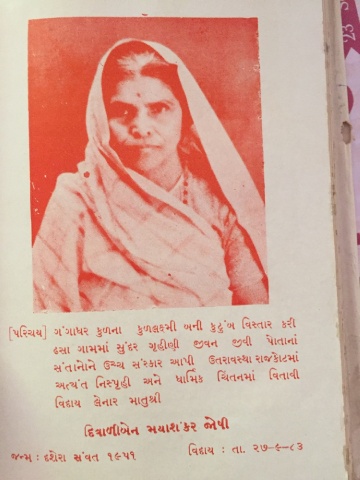 [પરિચય] ગંગાધર કુળના કુળલક્ષ્મી બની કુટુંબ વિસ્તાર કરી
હસા ગામમાં સુંદર ગૃહીણી જીવન જીવી પોતાનાં
સંતાનોને ઉચ્ચ સંસ્કાર આપી ઉતરાવસ્થા રાજકોટમાં
અત્યંત નિસ્પૃહી અને ધાર્મિક ચિંતનમાં વિતાવી
વિદાય લેનાર માતુશ્રી
દિવાળીબેન મયાશંકર જોષી
જન્મ : દશેરા સંવત ૧૯૫૧ વિદાય : તા. ૨૭-૯-૮૩
23